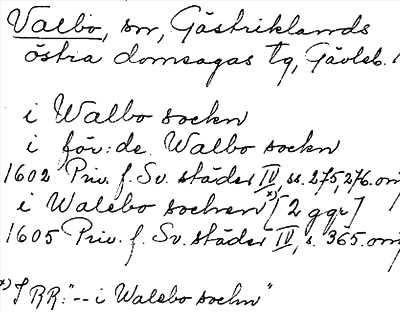 Valbo, sn, Gästriklands
östra domsagas tg, Gävleb. l
i Walbo sockn
i för:de Walbo sockn
1602 Priv. f. Sv. städer IV, ss. 275, 276. orig
i Walebo sochen x) [2 ggr]
1605 Priv. f. Sv. städer IV, s. 365. orig
x) I RR: "-- i Walebo sochn"